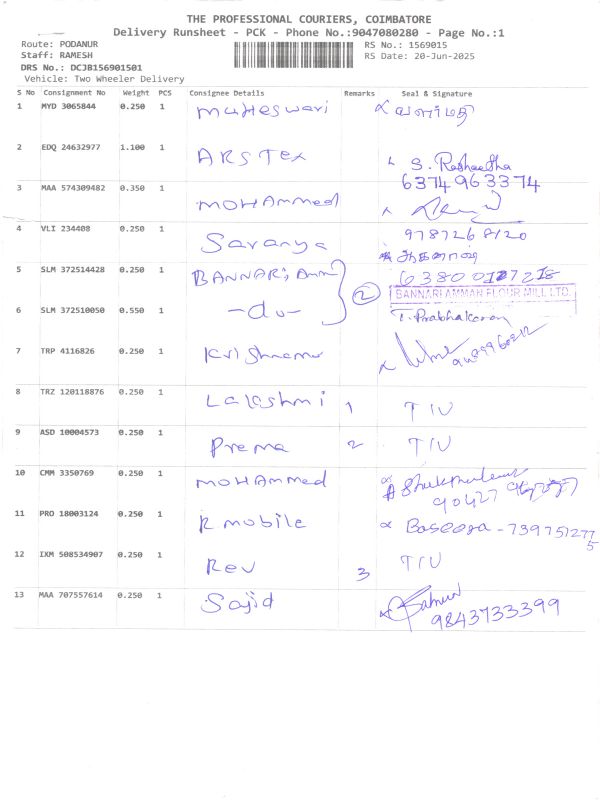 THE PROFESSIONAL COURIERS, COIMBATORE
Delivery Runsheet - PCK - Phone No.:9047080280 - Page No.:1
Route: PODANUR
Staff: RAMESH
DRS No.: DCJB156901501
Vehicle: Two Wheeler Delivery
RS No.: 1569015
RS Date: 20-Jun-2025
S No Consignment No Weight PCS Consignee Details Remarks Seal & Signature
1 MYD 3065844 0.250 1 Maheswari
2 EDQ 24632977 1.100 1 ARS Tex S. Rasheetha
6374963374
3 MAA 574309482 0.350 1 MOHAMMED
4 VLI 234408 0.250 1 Saranya 9787268120
5 SLM 372514428 0.250 1 BANNARI Amm 2
BANNARI AMMAN FLOUR MILL LTD.
6 SLM 372510050 0.550 1 -do- T. Prabhakaran
7 TRP 4116826 0.250 1
8 TRZ 120118876 0.250 1 Lakshmi 1 TIU
9 ASD 10004573 0.250 1 Prema 2 TIU
10 CMM 3350769 0.250 1 MOHAMMED
11 PRO 18003124 0.250 1 R. mobile
12 IXM 508534907 0.250 1 Rev 3 TIU
13 MAA 707557614 0.250 1 Sajid
9843733399